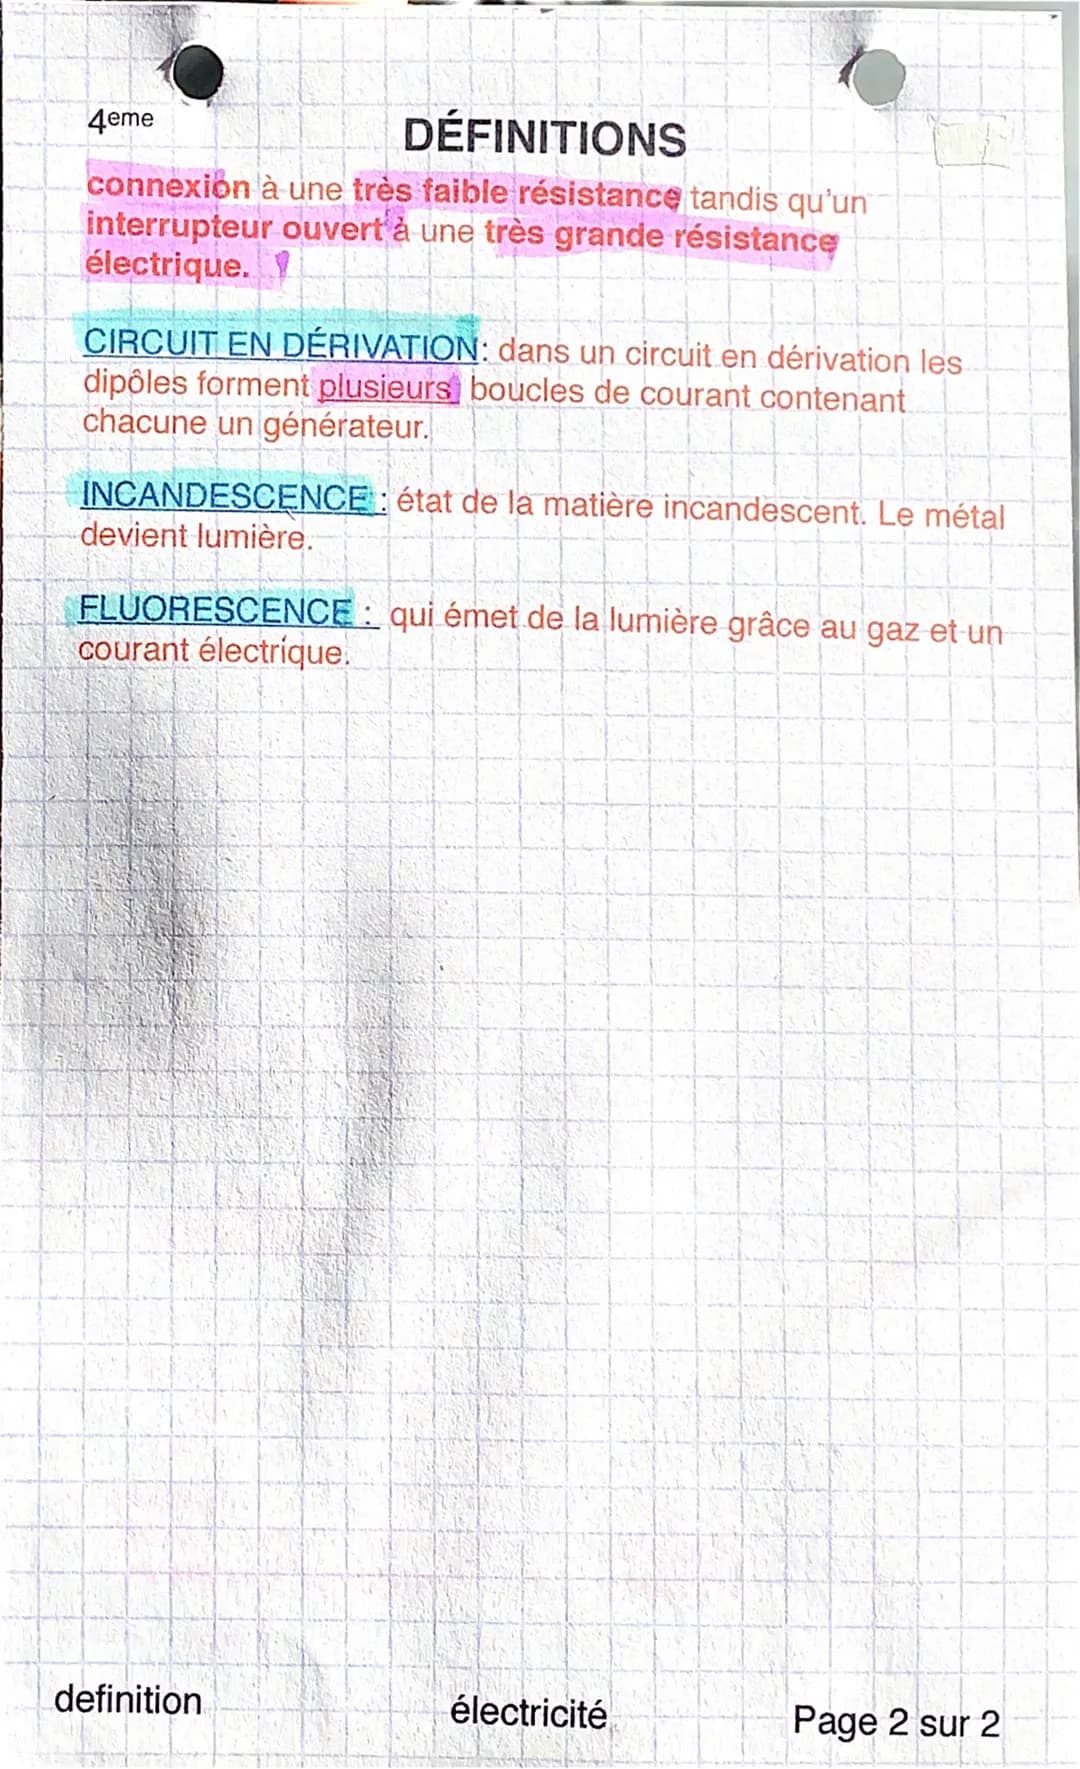 4eme
DÉFINITIONS
connexion à une très faible résistance tandis qu'un
interrupteur ouvert à une très grande résistance
électrique.
CIRCUIT EN DÉRIVATION: dans un circuit en dérivation les
dipôles forment plusieurs boucles de courant contenant
chacune un générateur.
INCANDESCENCE : état de la matière incandescent. Le métal
devient lumière.
FLUORESCENCE : qui émet de la lumière grâce au gaz et un
courant électrique.
definition électricité Page 2 sur 2